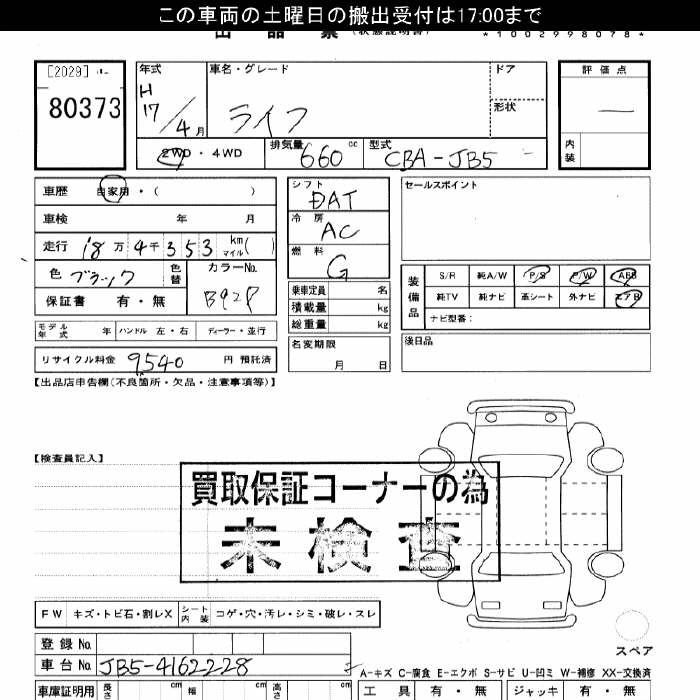 この車両の土曜日の搬出受付は17:00まで
出品票 (状態説明書) *1002998078*
[2029]
80373
年式 H17/4月
車名・グレード ライフ
ドア
形状
評価点 —
内装
2WD・4WD
排気量 660 cc
型式 CBA-JB5
車歴 自家用・( )
シフト DAT
セールスポイント
車検 年 月
冷房 AC
走行 18万4千353 km マイル( )
燃料 G
色 ブラック 色替
カラーNo. B92P
保証書 有・無
乗車定員 名
積載量 kg
総重量 kg
装備品 S/R 純A/W P/S P/W ABS
純TV 純ナビ 革シート 外ナビ エアB
ナビ型番:
モデル年式 年 ハンドル 左・右 ディーラー・並行
名変期限 月 日
後日品
リサイクル料金 9540 円 預託済
【出品店申告欄(不良箇所・欠品・注意事項等)】
【検査員記入】
買取保証コーナーの為
未検査
FW キズ・トビ石・割レX シート内装 コゲ・穴・汚レ・シミ・破レ・スレ
スペア
登録No.
車台No. JB5-4162228
A-キズ C-腐食 E-エクボ S-サビ U-凹ミ W-補修 XX-交換済
車庫証明用 長さ cm 幅 cm 高さ cm
工具 有・無 ジャッキ 有・無